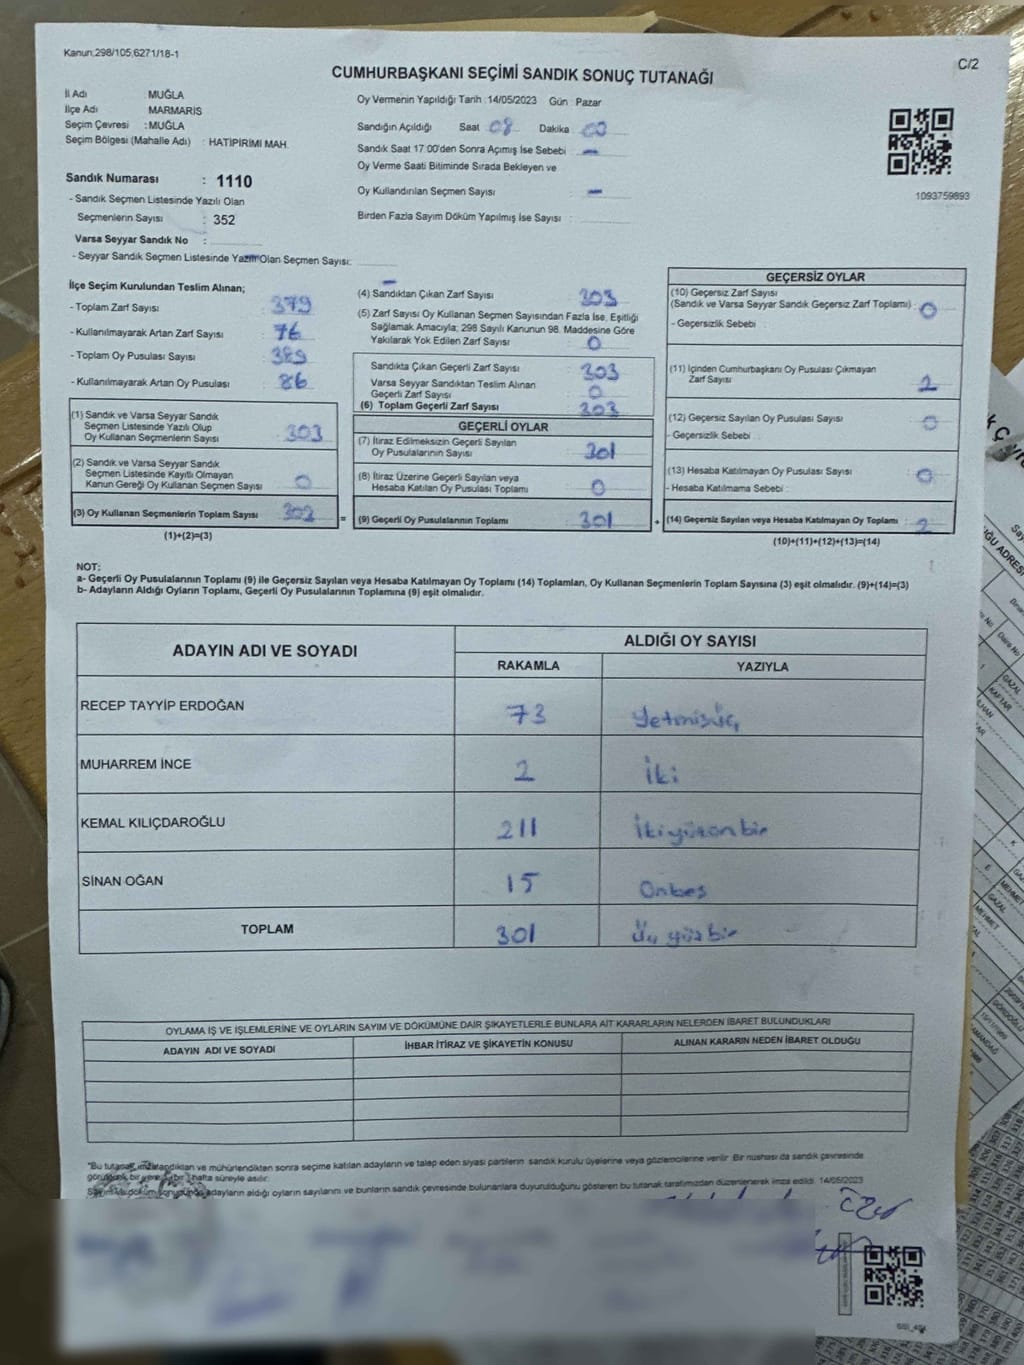 Kanun.298/105,6271/18-1
C/2
CUMHURBAŞKANI SEÇİMİ SANDIK SONUÇ TUTANAĞI
İl Adı : MUĞLA
İlçe Adı MARMARİS
Seçim Çevresi : MUĞLA
Seçim Bölgesi (Mahalle Adı) : HATİPİRİMİ MAH.
Sandık Numarası : 1110
- Sandık Seçmen Listesinde Yazılı Olan
Seçmenlerin Sayısı : 352
Varsa Seyyar Sandık No :
- Seyyar Sandık Seçmen Listesinde Yazılı Olan Seçmen Sayısı:
Oy Vermenin Yapıldığı Tarih :14/05/2023 Gün : Pazar
Sandığın Açıldığı Saat 08 Dakika 00
Sandık Saat 17:00'den Sonra Açımış İse Sebebi —
Oy Verme Saati Bitiminde Sırada Bekleyen ve
Oy Kullandırılan Seçmen Sayısı —
Birden Fazla Sayım Döküm Yapılmış İse Sayısı :
1093759893
İlçe Seçim Kurulundan Teslim Alınan;
- Toplam Zarf Sayısı : 379
- Kullanılmayarak Artan Zarf Sayısı : 76
- Toplam Oy Pusulası Sayısı : 389
- Kullanılmayarak Artan Oy Pusulası : 86
(1) Sandık ve Varsa Seyyar Sandık
Seçmen Listesinde Yazılı Olup
Oy Kullanan Seçmenlerin Sayısı : 303
(2) Sandık ve Varsa Seyyar Sandık
Seçmen Listesinde Kayıtlı Olmayan
Kanun Gereği Oy Kullanan Seçmen Sayısı : 0
(3) Oy Kullanan Seçmenlerin Toplam Sayısı : 303
(1)+(2)=(3)
(4) Sandıktan Çıkan Zarf Sayısı : 303
(5) Zarf Sayısı Oy Kullanan Seçmen Sayısından Fazla İse, Eşitliği
Sağlamak Amacıyla; 298 Sayılı Kanunun 98. Maddesine Göre
Yakılarak Yok Edilen Zarf Sayısı : 0
Sandıkta Çıkan Geçerli Zarf Sayısı : 303
Varsa Seyyar Sandıktan Teslim Alınan
Geçerli Zarf Sayısı : 0
(6) Toplam Geçerli Zarf Sayısı : 303
GEÇERLİ OYLAR
(7) İtiraz Edilmeksizin Geçerli Sayılan
Oy Pusulalarının Sayısı : 301
(8) İtiraz Üzerine Geçerli Sayılan veya
Hesaba Katılan Oy Pusulası Toplamı : 0
= (9) Geçerli Oy Pusulalarının Toplamı : 301
GEÇERSİZ OYLAR
(10) Geçersiz Zarf Sayısı
(Sandık ve Varsa Seyyar Sandık Geçersiz Zarf Toplamı) : 0
- Geçersizlik Sebebi :
(11) İçinden Cumhurbaşkanı Oy Pusulası Çıkmayan
Zarf Sayısı : 2
(12) Geçersiz Sayılan Oy Pusulası Sayısı : 0
- Geçersizlik Sebebi :
(13) Hesaba Katılmayan Oy Pusulası Sayısı : 0
- Hesaba Katılmama Sebebi :
+ (14) Geçersiz Sayılan veya Hesaba Katılmayan Oy Toplamı : 2
(10)+(11)+(12)+(13)=(14)
NOT:
a- Geçerli Oy Pusulalarının Toplamı (9) ile Geçersiz Sayılan veya Hesaba Katılmayan Oy Toplamı (14) Toplamları, Oy Kullanan Seçmenlerin Toplam Sayısına (3) eşit olmalıdır. (9)+(14)=(3)
b- Adayların Aldığı Oyların Toplamı, Geçerli Oy Pusulalarının Toplamına (9) eşit olmalıdır.
ADAYIN ADI VE SOYADI ALDIĞI OY SAYISI
RAKAMLA YAZIYLA
RECEP TAYYİP ERDOĞAN 73 Yetmişüç
MUHARREM İNCE 2 İki
KEMAL KILIÇDAROĞLU 211 İkiyüzonbir
SİNAN OĞAN 15 Onbeş
TOPLAM 301 Üç yüz bir
OYLAMA İŞ VE İŞLEMLERİNE VE OYLARIN SAYIM VE DÖKÜMÜNE DAİR ŞİKAYETLERLE BUNLARA AİT KARARLARIN NELERDEN İBARET BULUNDUKLARI
ADAYIN ADI VE SOYADI İHBAR İTİRAZ VE ŞİKAYETİN KONUSU ALINAN KARARIN NEDEN İBARET OLDUĞU
"Bu tutanak imzalandıktan ve mühürlendikten sonra seçime katılan adayların ve talep eden siyasi partilerin sandık kurulu üyelerine veya gözlemcilerine verilir. Bir nüshası da sandık çevresinde
görülecek bir yere (bir) hafta süreyle asılır.
adayların aldığı oyların sayılarını ve bunların sandık çevresinde bulunanlara duyurulduğunu gösteren bu tutanak tarafımızdan düzenlenerek imza edildi. 14/05/2023